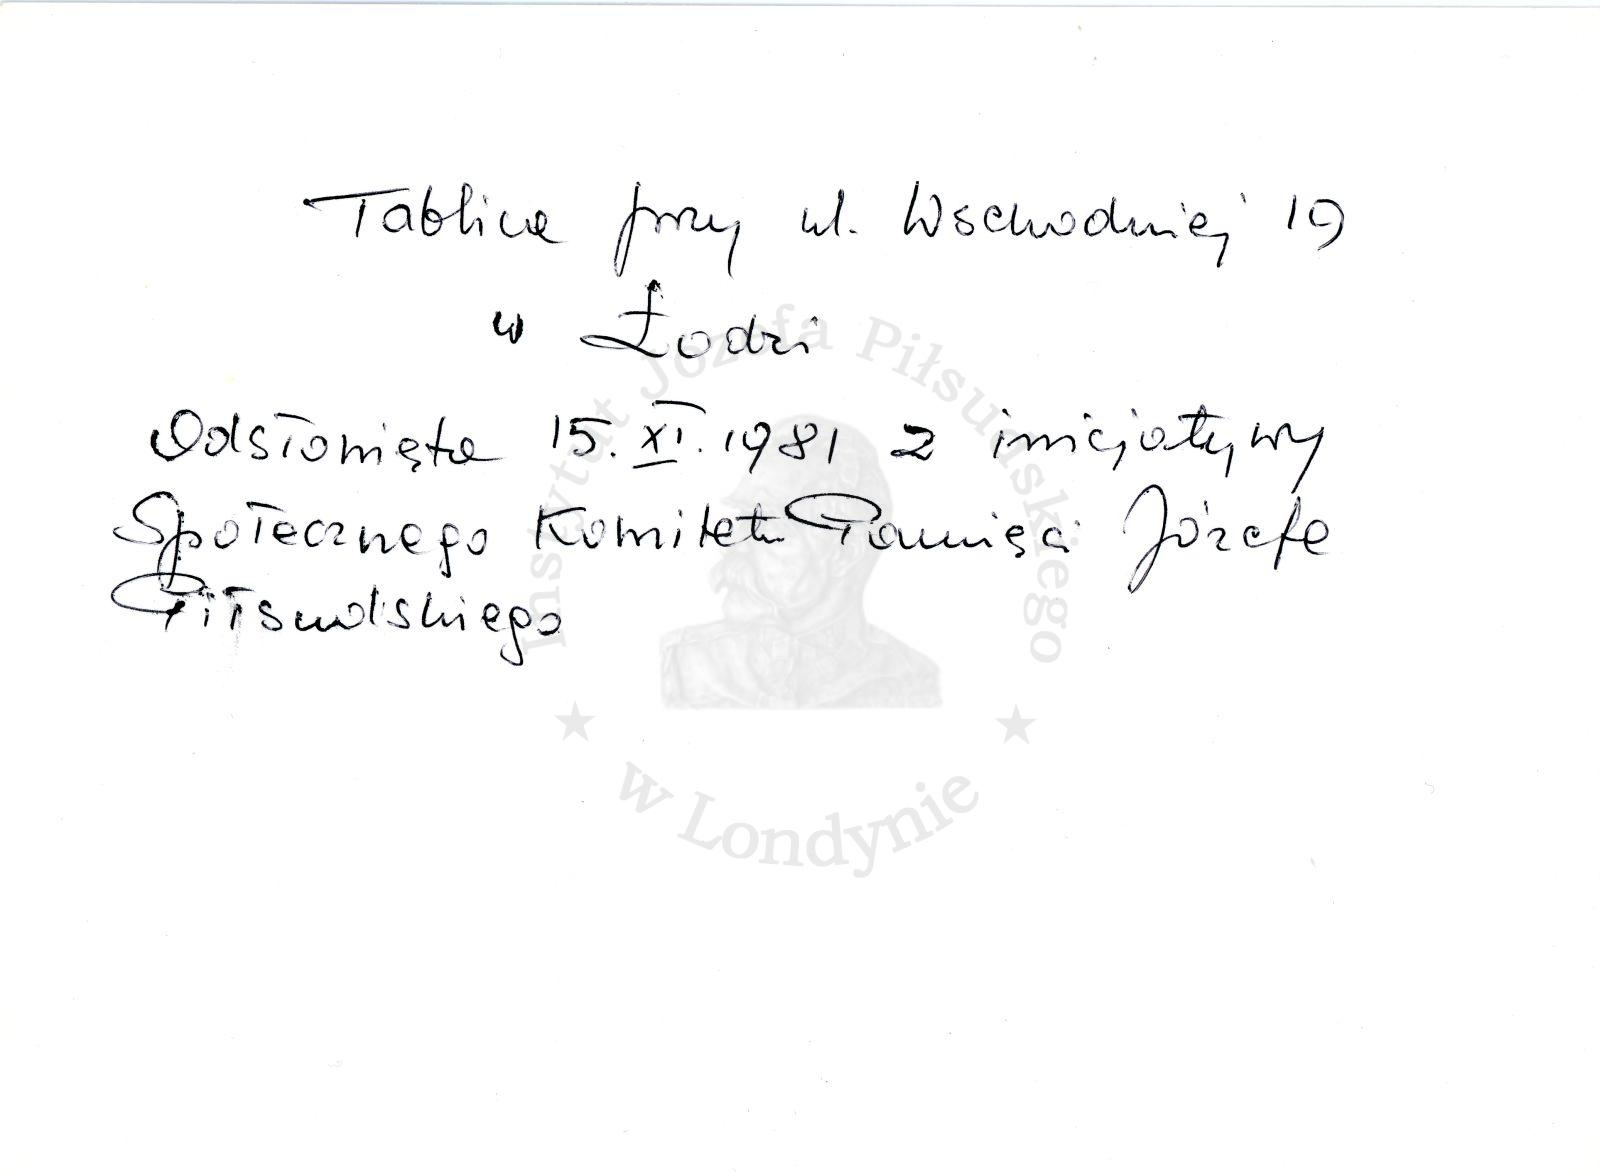 Tablica przy ul. Wschodniej 19
w Łodzi
Odsłonięta 15.XI.1981 z inicjatywy
Społecznego Komitetu Pamięci Józefa
Piłsudskiego
Instytut Józefa Piłsudskiego
w Londynie